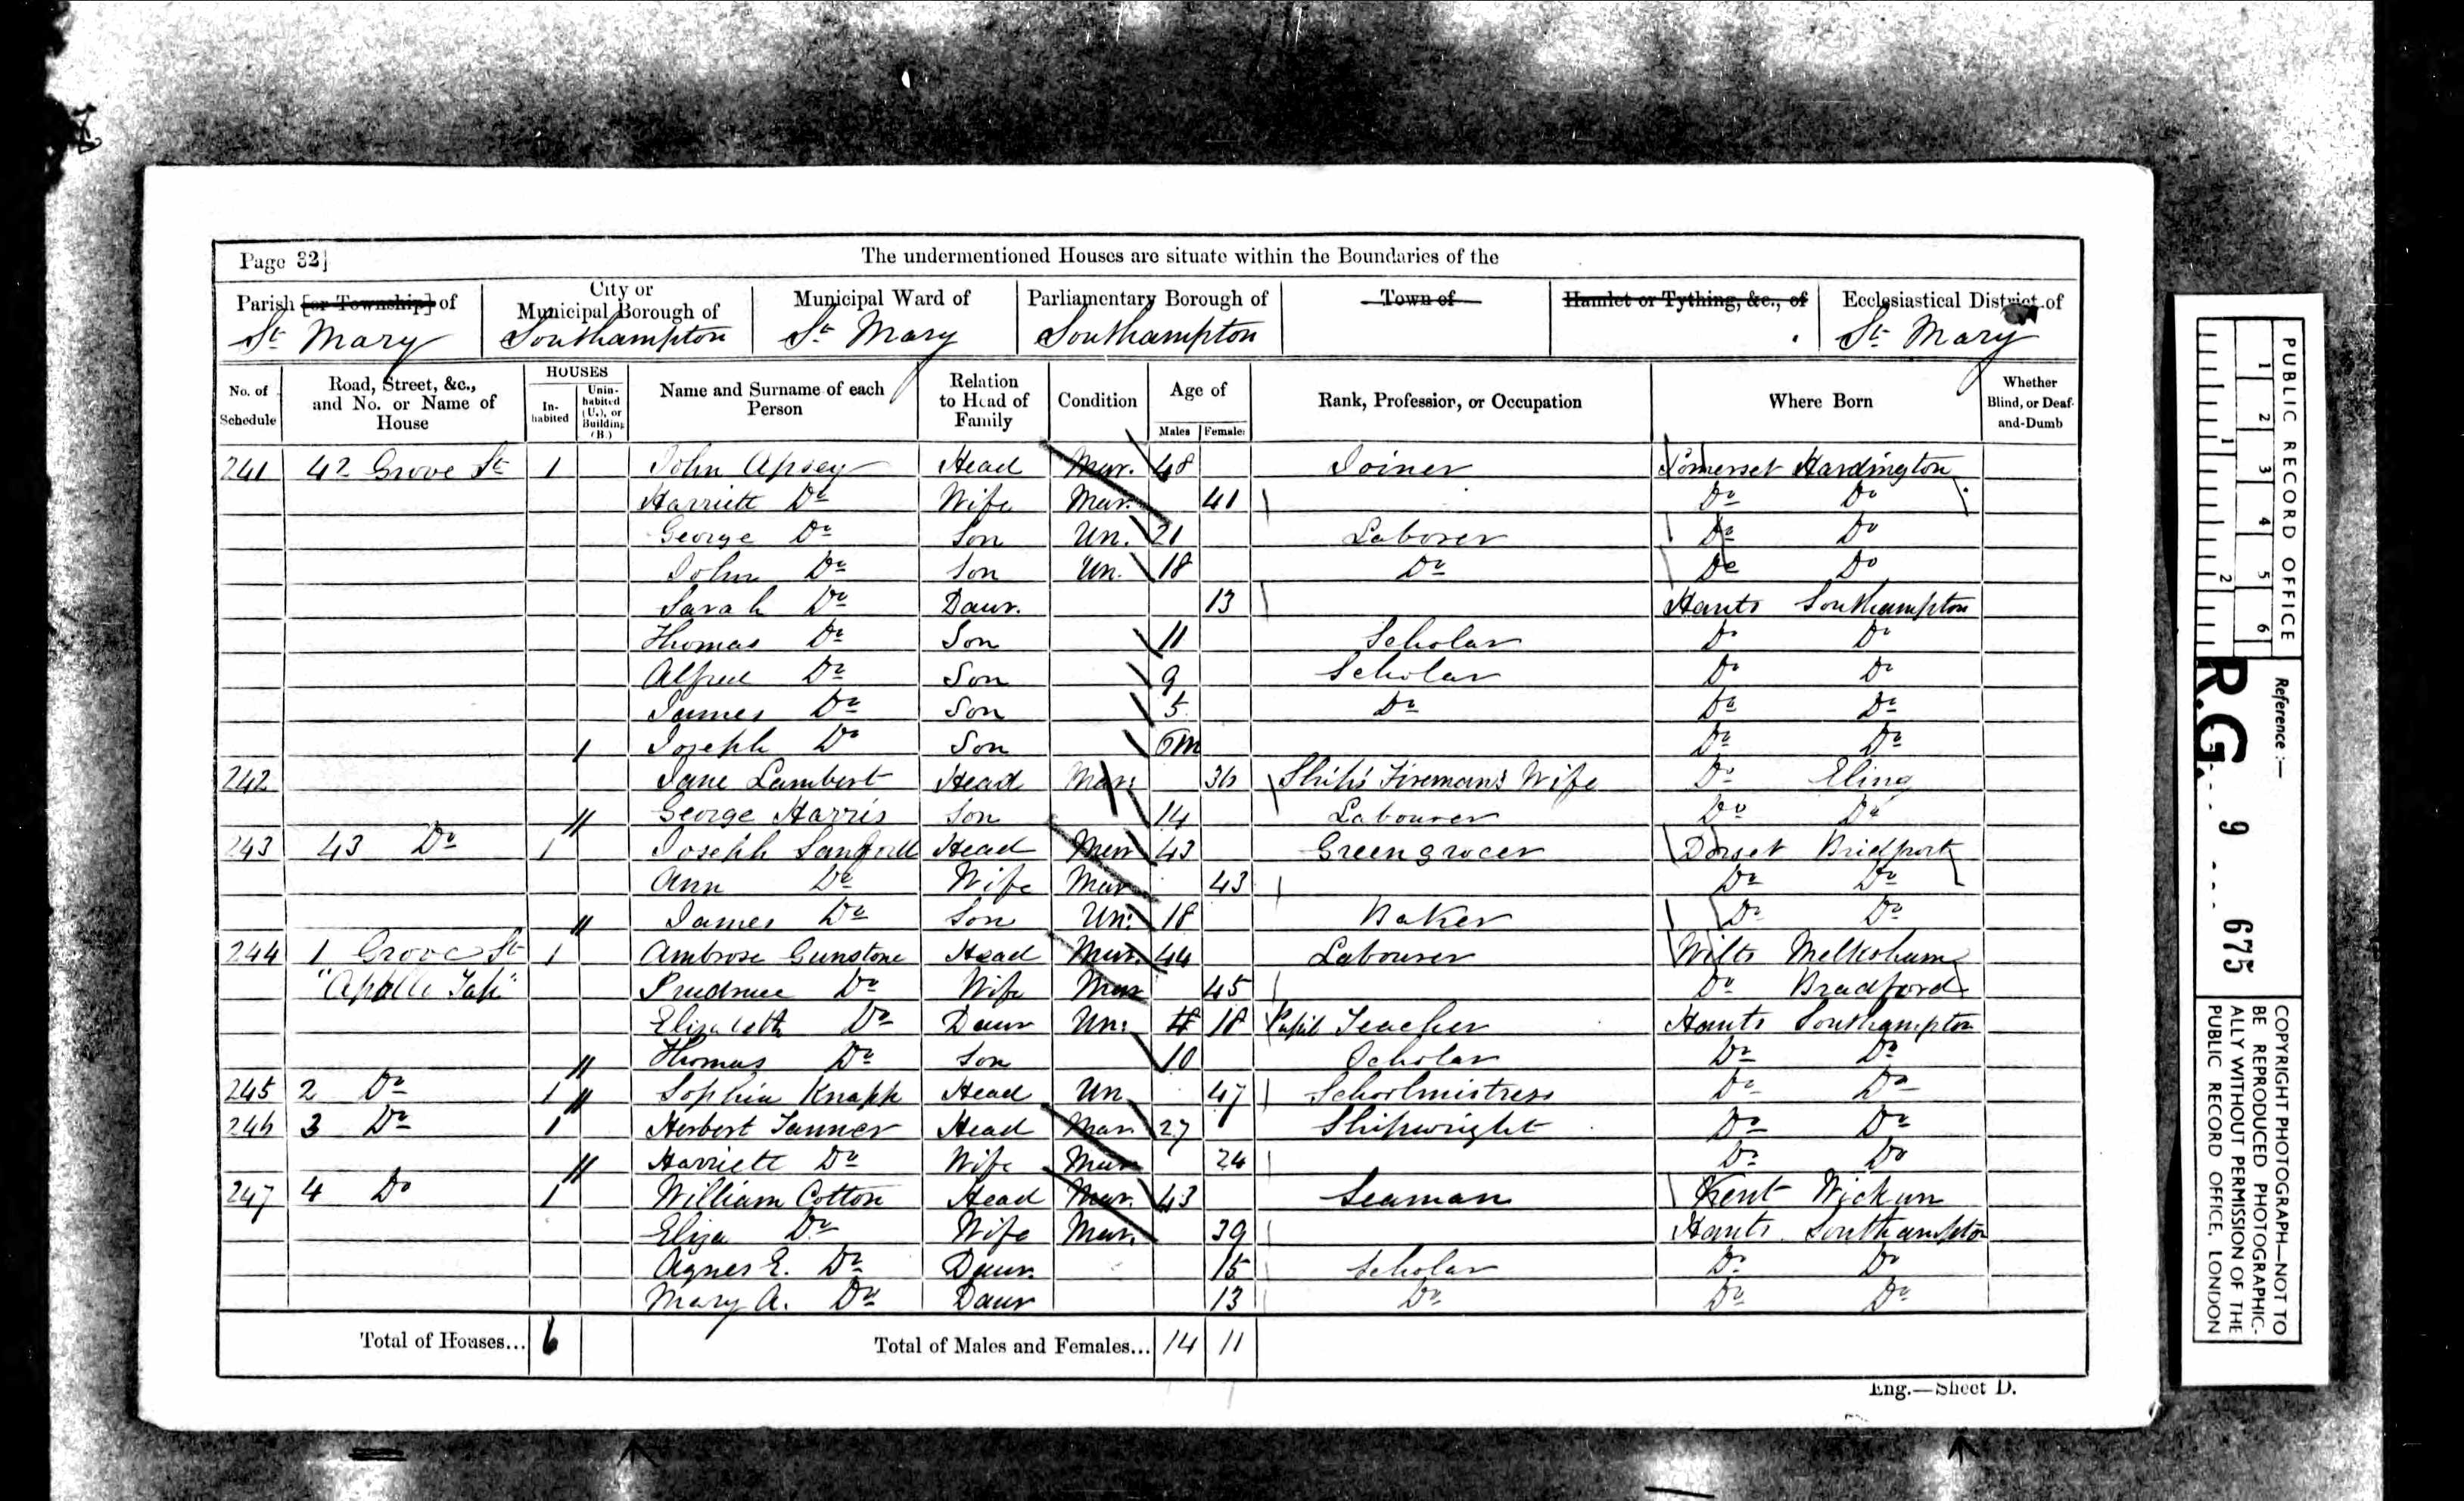 Page 32]
The undermentioned Houses are situate within the Boundaries of the
Parish [or Township] of
City or Municipal Borough of
Municipal Ward of
Parliamentary Borough of
Town of
Hamlet or Tything, &c., of
Ecclesiastical District of
St Mary
Southampton
St Mary
Southampton
St Mary
No. of Schedule
Road, Street, &c., and No. or Name of House
HOUSES
In-habited
Unin-habited (U.), or Building (B.)
Name and Surname of each Person
Relation to Head of Family
Condition
Age of
Males
Females
Rank, Profession, or Occupation
Where Born
Whether Blind, or Deaf-and-Dumb
241 42 Grove St 1 John Apsey Head Mar. 48 Joiner Somerset Hardington
Harriett Do Wife Mar. 41 Do Do
George Do Son Un. 21 Laborer Do Do
John Do Son Un. 18 Do Do Do
Sarah Do Daur. 13 Hants Southampton
Thomas Do Son 11 Scholar Do Do
Alfred Do Son 9 Scholar Do Do
James Do Son 5 Do Do Do
Joseph Do Son 6m Do Do
242 Jane Lambert Head Mar. 36 Ship's Fireman's Wife Do Eling
George Harris Son 14 Labourer Do Do
243 43 Do 1 Joseph Head Mar 43 Greengrocer Dorset Bridport
Ann Do Wife Mar 43 Do Do
James Do Son Un. 18 Baker Do Do
244 1 Grove St 1 Ambrose Gunstone Head Mar. 44 Labourer Wilts Melksham
Prudence Do Wife Mar 45 Do Bradford
Elizabeth Do Daur Un. 18 Pupil Teacher Hants Southampton
Thomas Do Son 10 Scholar Do Do
245 2 Do 1 Sophia Knapp Head Un 47 Schoolmistress Do Do
246 3 Do 1 Herbert Tanner Head Mar. 27 Shipwright Do Do
Harriett Do Wife Mar 24 Do Do
247 4 Do 1 William Cotton Head Mar. 43 Seaman Kent
Eliza Do Wife Mar. 39 Hants Southampton
Agnes E. Do Daur. 15 Scholar Do Do
Mary A. Do Daur 13 Do Do Do
Total of Houses... 6
Total of Males and Females... 14 11
Eng.—Sheet D.
PUBLIC RECORD OFFICE
1 2 3 4 5 6
1 2
Reference :—
R.G. 9 675
COPYRIGHT PHOTOGRAPH—NOT TO
BE REPRODUCED PHOTOGRAPHIC-
ALLY WITHOUT PERMISSION OF THE
PUBLIC RECORD OFFICE, LONDON